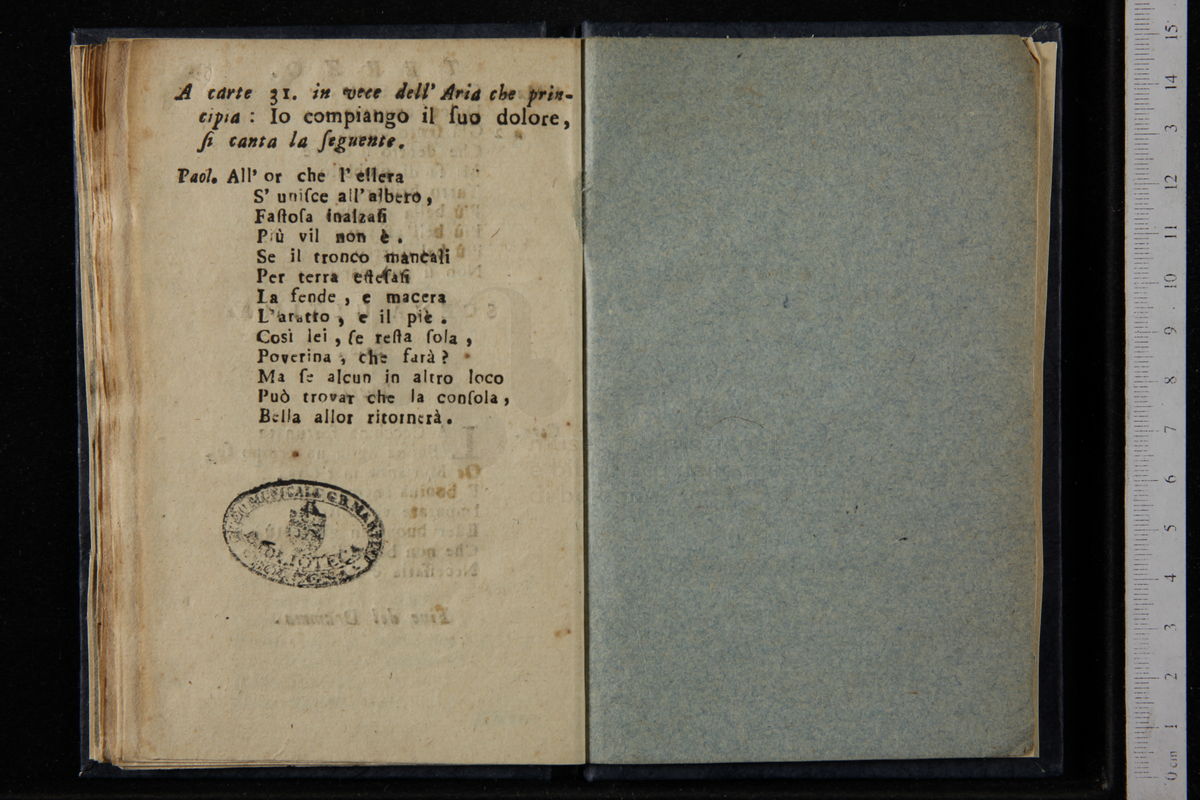 A carte 31. in vece dell' Aria che prin-
cipia : Io compiango il ſuo dolore,
ſi canta la ſeguente.
Paol. All' or che l'ellera
S' uniſce all'albero,
Faſtoſa inalzaſi
Più vil non è.
Se il tronco mancaſi
Per terra eſteſaſi
La fende, e macera
L'aratto, e il piè.
Così lei, ſe reſta ſola,
Poverina, che farà?
Ma ſe alcun in altro loco
Può trovar che la conſola,
Bella allor ritornerà.
LICEO MUSICALE G.B. MARTINI
BIBLIOTECA
BOLOGNA
Fine del Dramma.
0 cm 1 2 3 4 5 6 7 8 9 10 11 12 3 14 15